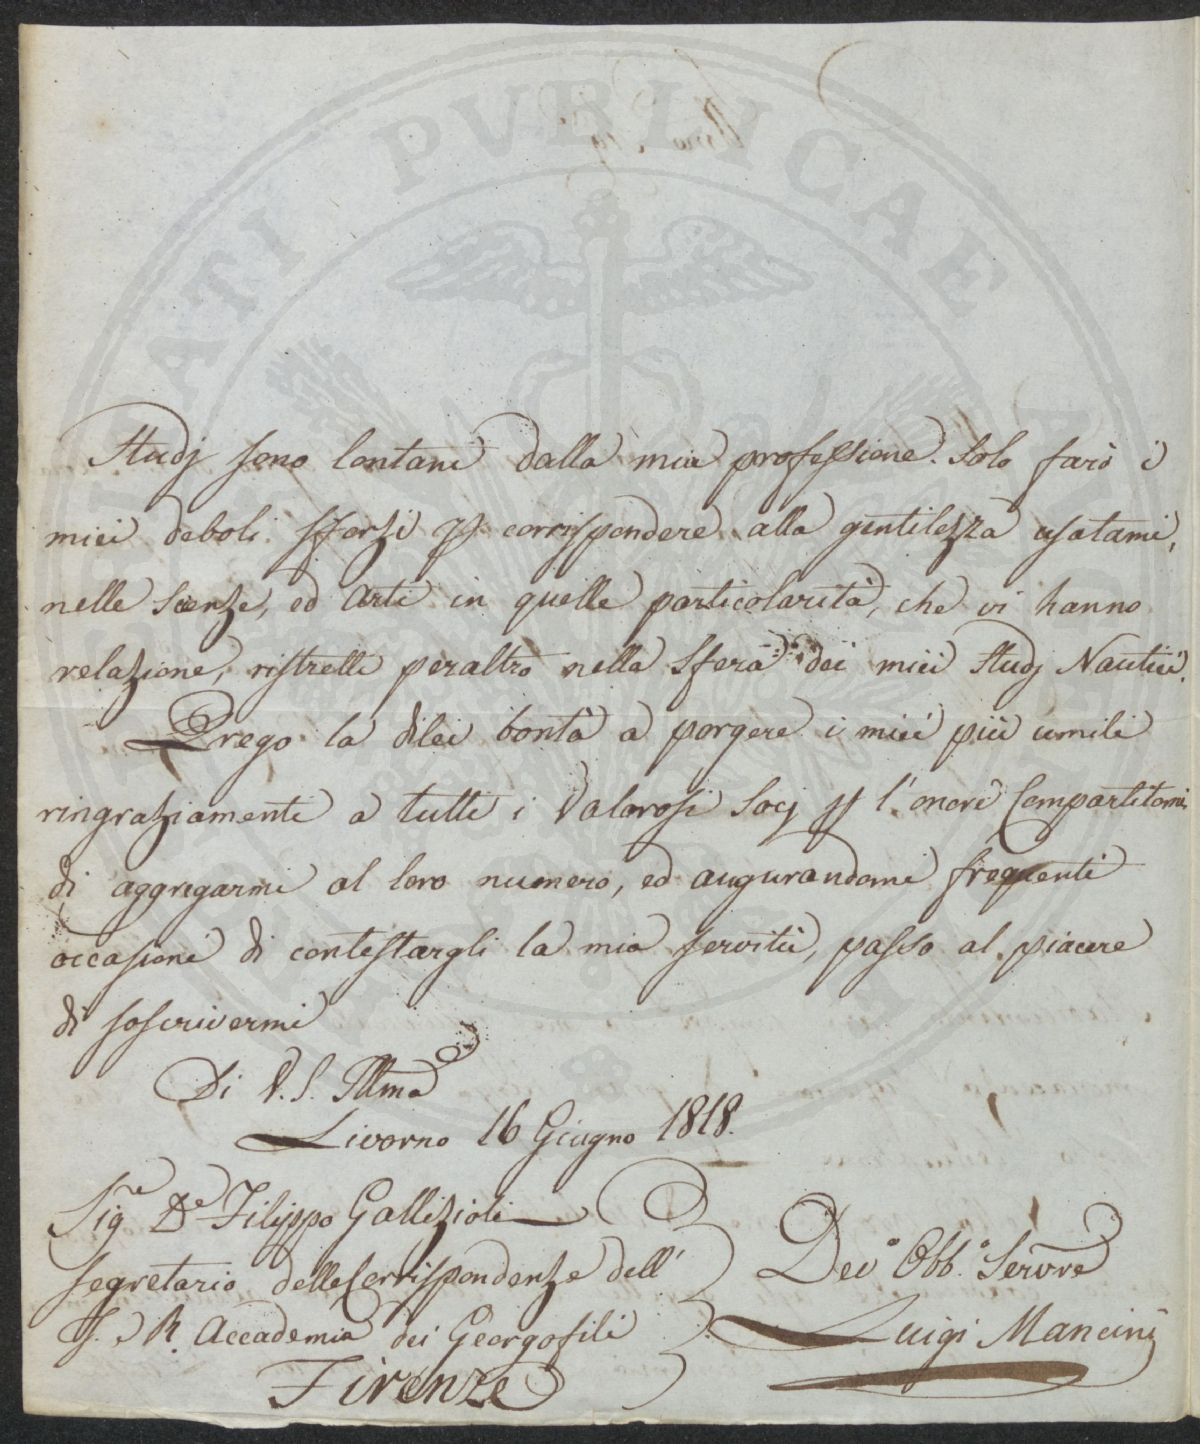 Studj sono lontani dalla mia professione. Solo farò i
miei deboli sforzi p corrispondere alla gentilezza usatami,
nelle Scienze, ed Arti in quelle particolarità, che vi hanno
relazione, ristretti peraltro nella Sfera dei miei Studj Nautici.
Prego la dilei bontà a porgere i miei più umili
ringraziamenti a tutti i Valorosi Socj p l'onore Compartitomi
di aggregarmi al loro numero, ed augurandomi frequenti
occasioni di contestargli la mia servitù, passo al piacere
di soscrivermi
Di V. S. Illma
Livorno 16 Giugno 1818.
Sigre Dre Filippo Gallizioli
segretario delle Corrispondenze dell'
I. e R. Accademia dei Georgofili
Firenze
Devo Obbo Servre
Luigi Mancini
PUBLICAE